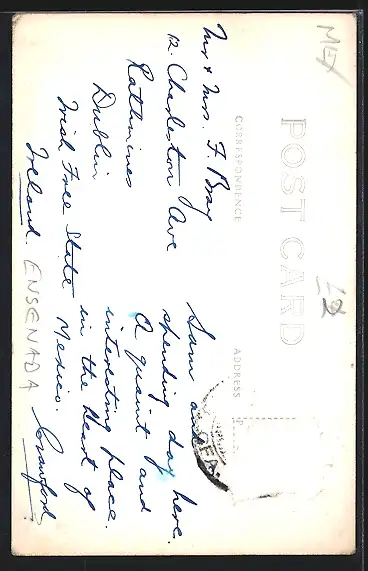 POST CARD
CORRESPONDENCE
ADDRESS
MEX
Mr & Mrs. F. Bray
12. Charleston Ave
Rathmines
Dublin
Irish Free State
Ireland.
Sam and
spending day here.
A quaint and
interesting place.
in the heart of
Mexico. Crawford
ENSENADA